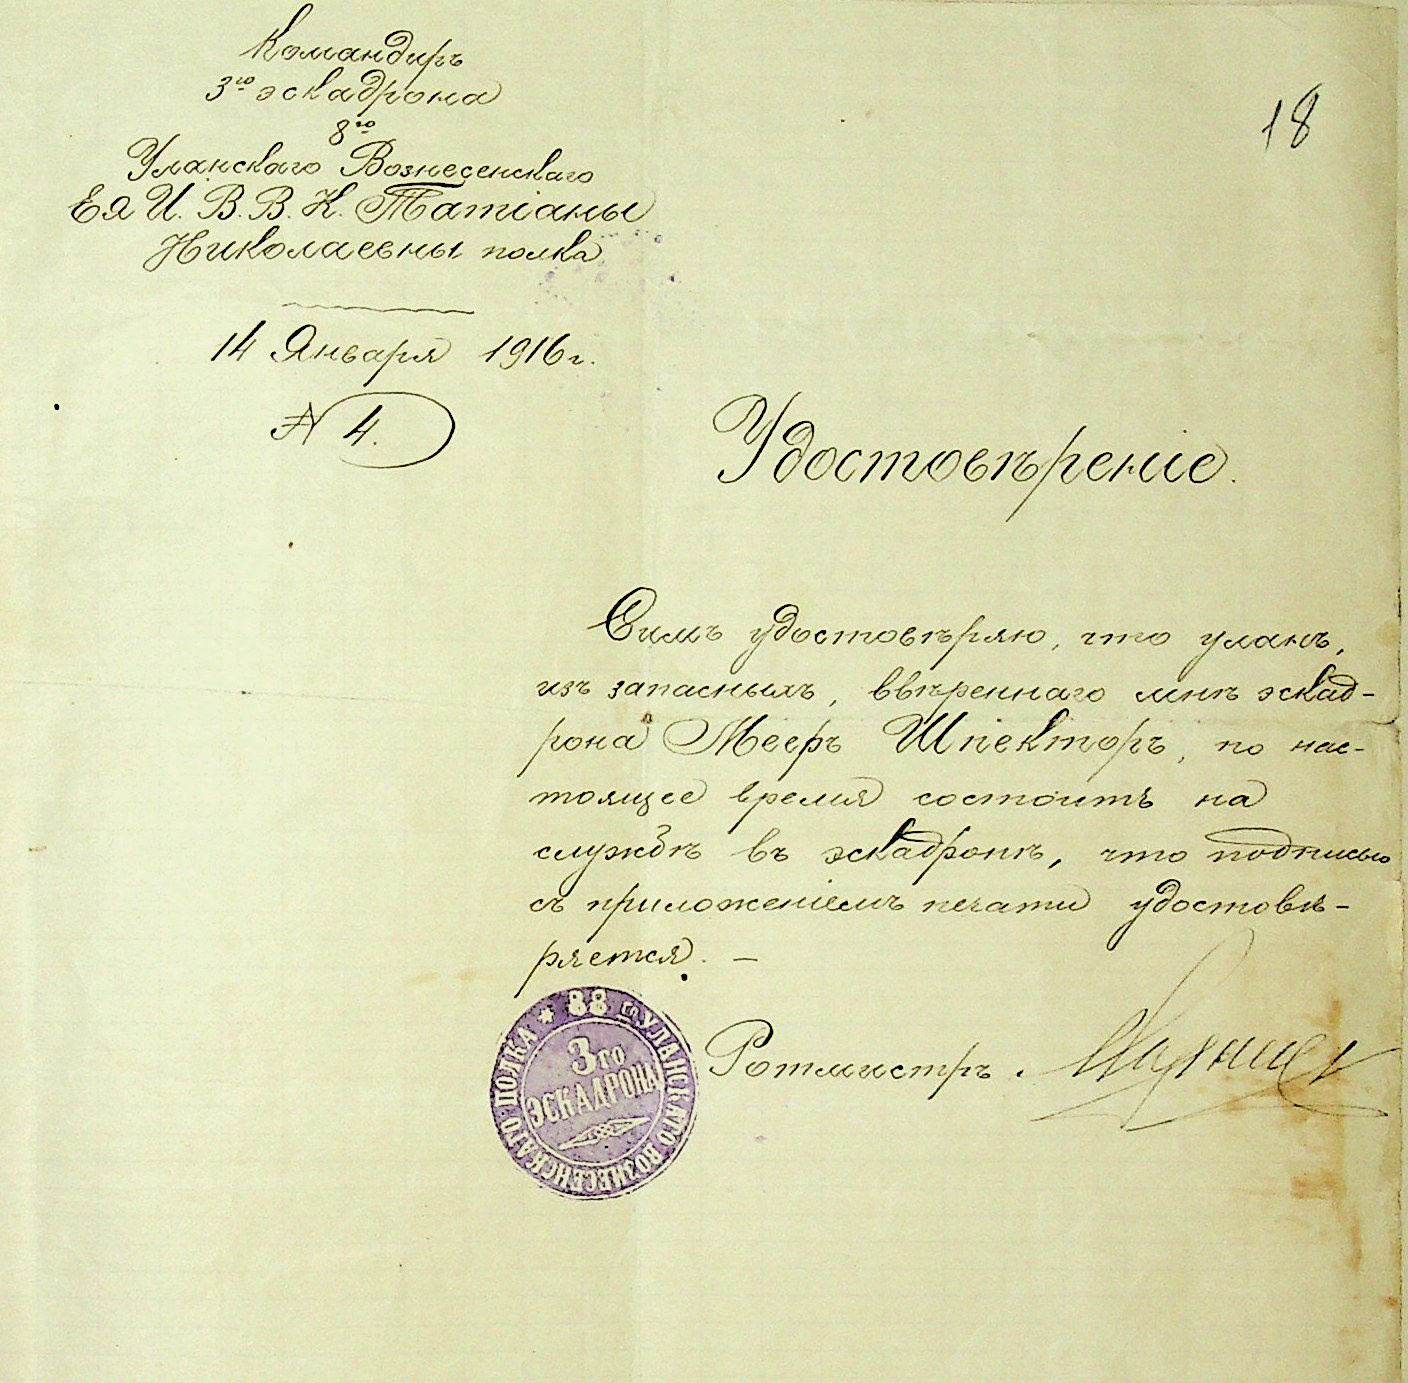 Командиръ
3го эскадрона
8го
Уланскаго Вознесенскаго
Ея И. В. В. К. Татіаны
Николаевны полка
14 Января 1916 г.
№ 4.
18
Удостовѣреніе.
Симъ удостовѣряю, что уланъ,
изъ запасныхъ, ввѣреннаго мнѣ эскад-
рона Мееръ Шпекторъ, по нас-
тоящее время состоитъ на
службѣ въ эскадронѣ, что подписью
съ приложеніемъ печати удостовѣ-
ряется. —
Ротмистръ
3го
ЭСКАДРОНА
УЛАНСКАГО ВОЗНЕСЕНСКАГО ПОЛКА *